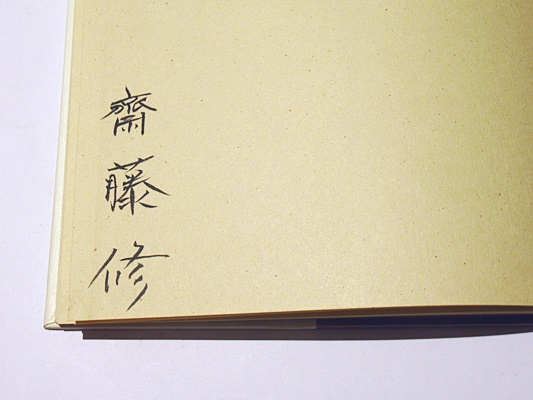 齋藤修